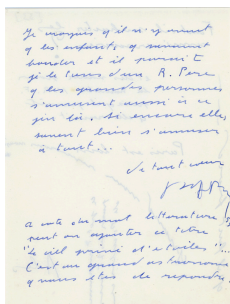 Je croyais qu'il n'y avait
q les enfants q savaient
bouder et il paraît
je le tiens d'un R. Père
q les grandes personnes
s'amusent aussi à ce
jeu là. Si encore elles
savent bien s'amuser
à tout...
De tout cœur
a cote du mal litterature
peut on ajouter ce titre
"le ciel privé d'etoiles"...
C'est un quand astronomie
q vous êtes de repondre.